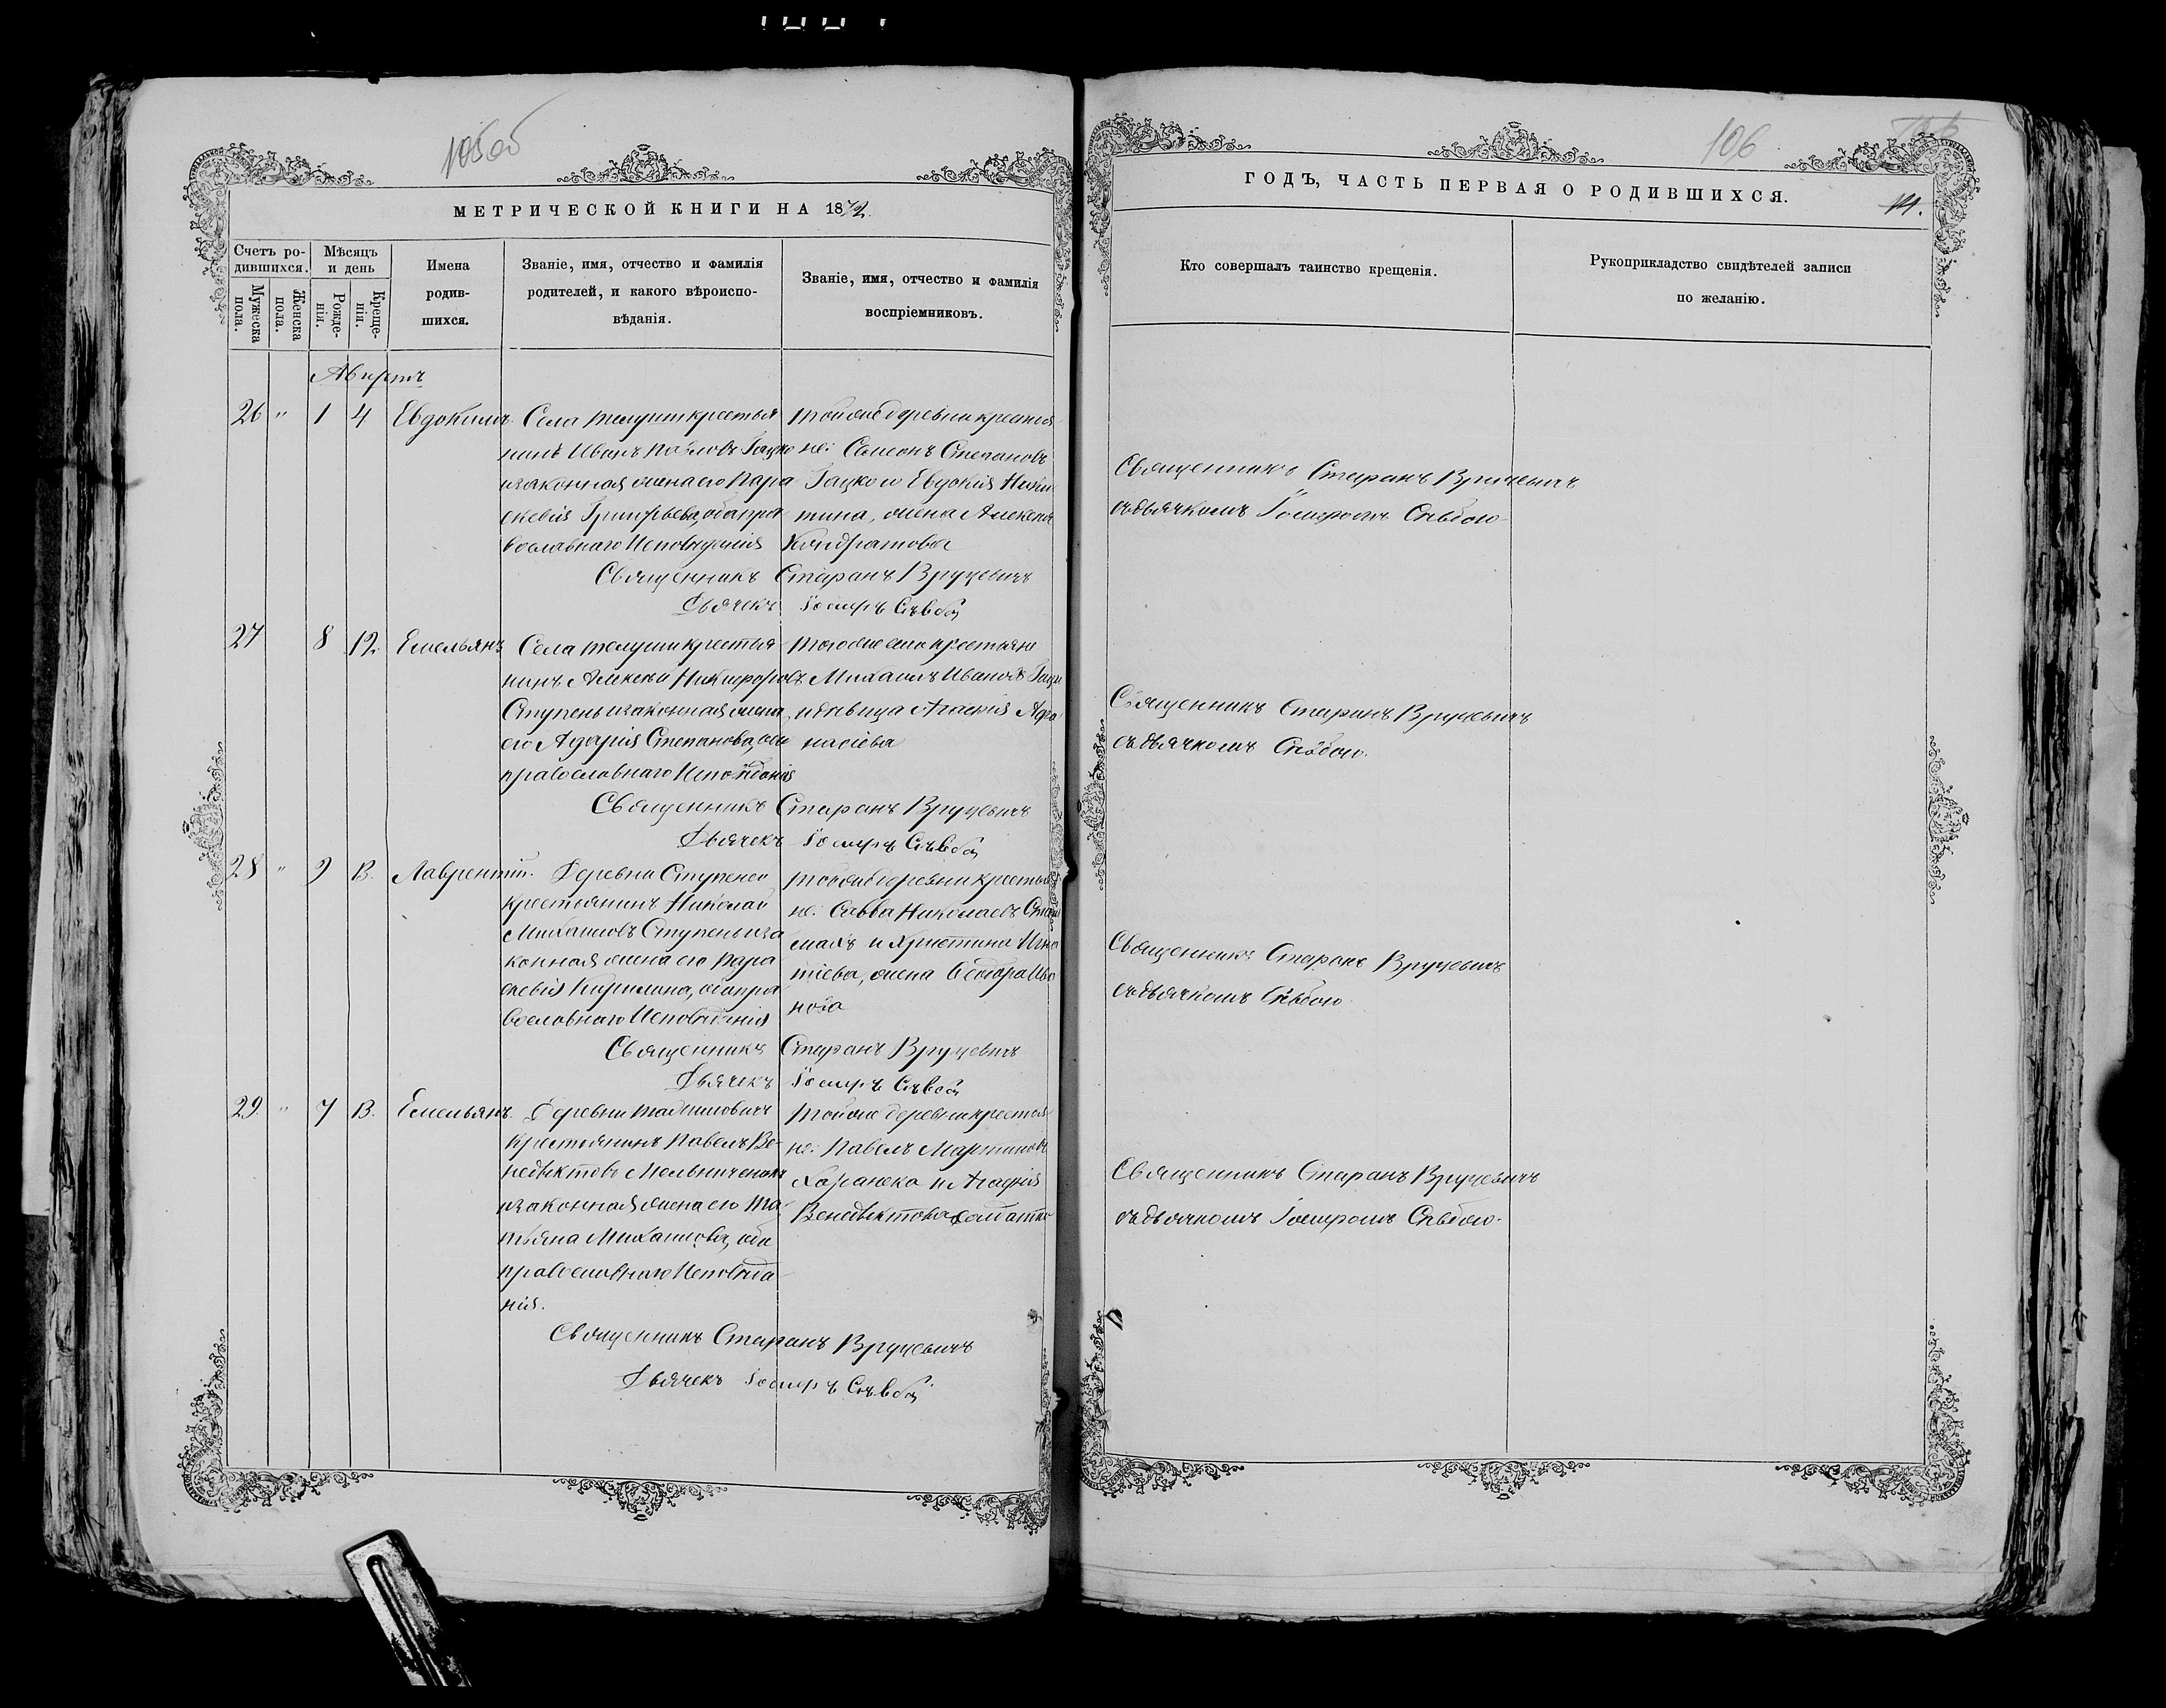 105об
МЕТРИЧЕСКОЙ КНИГИ НА 1872.
Счетъ родившихся.
Мѣсяцъ и день
Имена родившихся.
Званіе, имя, отчество и фамилія родителей, и какого вѣроисповѣданія.
Званіе, имя, отчество и фамилія воспріемниковъ.
Мужеска пола.
Женска пола.
Рожденія.
Крещенія.
Августъ
26 " 1 4 Евдокимъ.
Села Телуши крестья
нинъ Иванъ Павловъ Гацко
и законная жена его Пара
скевія Григорьева, оба пра
вославнаго Исповѣданія
тойже деревни крестья
не: Симеонъ Степановъ
Гацко и Евдокія Ники
тина, жена Алексея
Кондратова
Священникъ Стефанъ Вручевичъ
Дьячекъ Іосифъ Сѣвба
27 8 12 Емельянъ
Села Телуши крестья
нинъ Алексѣй Никифоровъ
Ступень и законная жена
его Агафія Степанова, оба
православнаго Исповѣданія
тогоже села крестьяне
Михаилъ Ивановъ Гацко
и дѣвица Агафія Афа
насіева
Священникъ Стефанъ Вручевичъ
Дьячекъ Іосифъ Сѣвба
28 " 9 13. Лаврентій.
Деревни Ступеней
крестьянинъ Николай
Михаиловъ Ступень и за
конная жена его Пара
скевія Кирилова, оба пра
вославнаго Исповѣданія
тойже деревни крестья
не: Савва Николаевъ
и Христина Игна
тіева, жена Ѳеодора Ива
нова
Священникъ Стефанъ Вручевичъ
Дьячекъ Іосифъ Сѣвба
29 " 7 13. Емельянъ.
Деревни
крестьянинъ Павелъ Ве-
недиктовъ Мельниченокъ
и законная жена его Та-
тьяна Михаилова, оба
православнаго Исповѣда-
нія.
тойже деревни крестья
не: Павелъ Мартиновъ
и Агафія
Венедиктова солдатка
Священникъ Стефанъ Вручевичъ
Дьячекъ Іосифъ Сѣвба
106
ГОДЪ, ЧАСТЬ ПЕРВАЯ О РОДИВШИХСЯ.
Кто совершалъ таинство крещенія.
Рукоприкладство свидѣтелей записи по желанію.
Священникъ Стефанъ Вручевичъ
съ дьячкомъ Іосифомъ Сѣвбою
Священникъ Стефанъ Вручевичъ
съ дьячкомъ Сѣвбою.
Священникъ Стефанъ Вручевичъ
съ дьячкомъ Сѣвбою
Священникъ Стефанъ Вручевичъ
съ дьячкомъ Іосифомъ Сѣвбою.